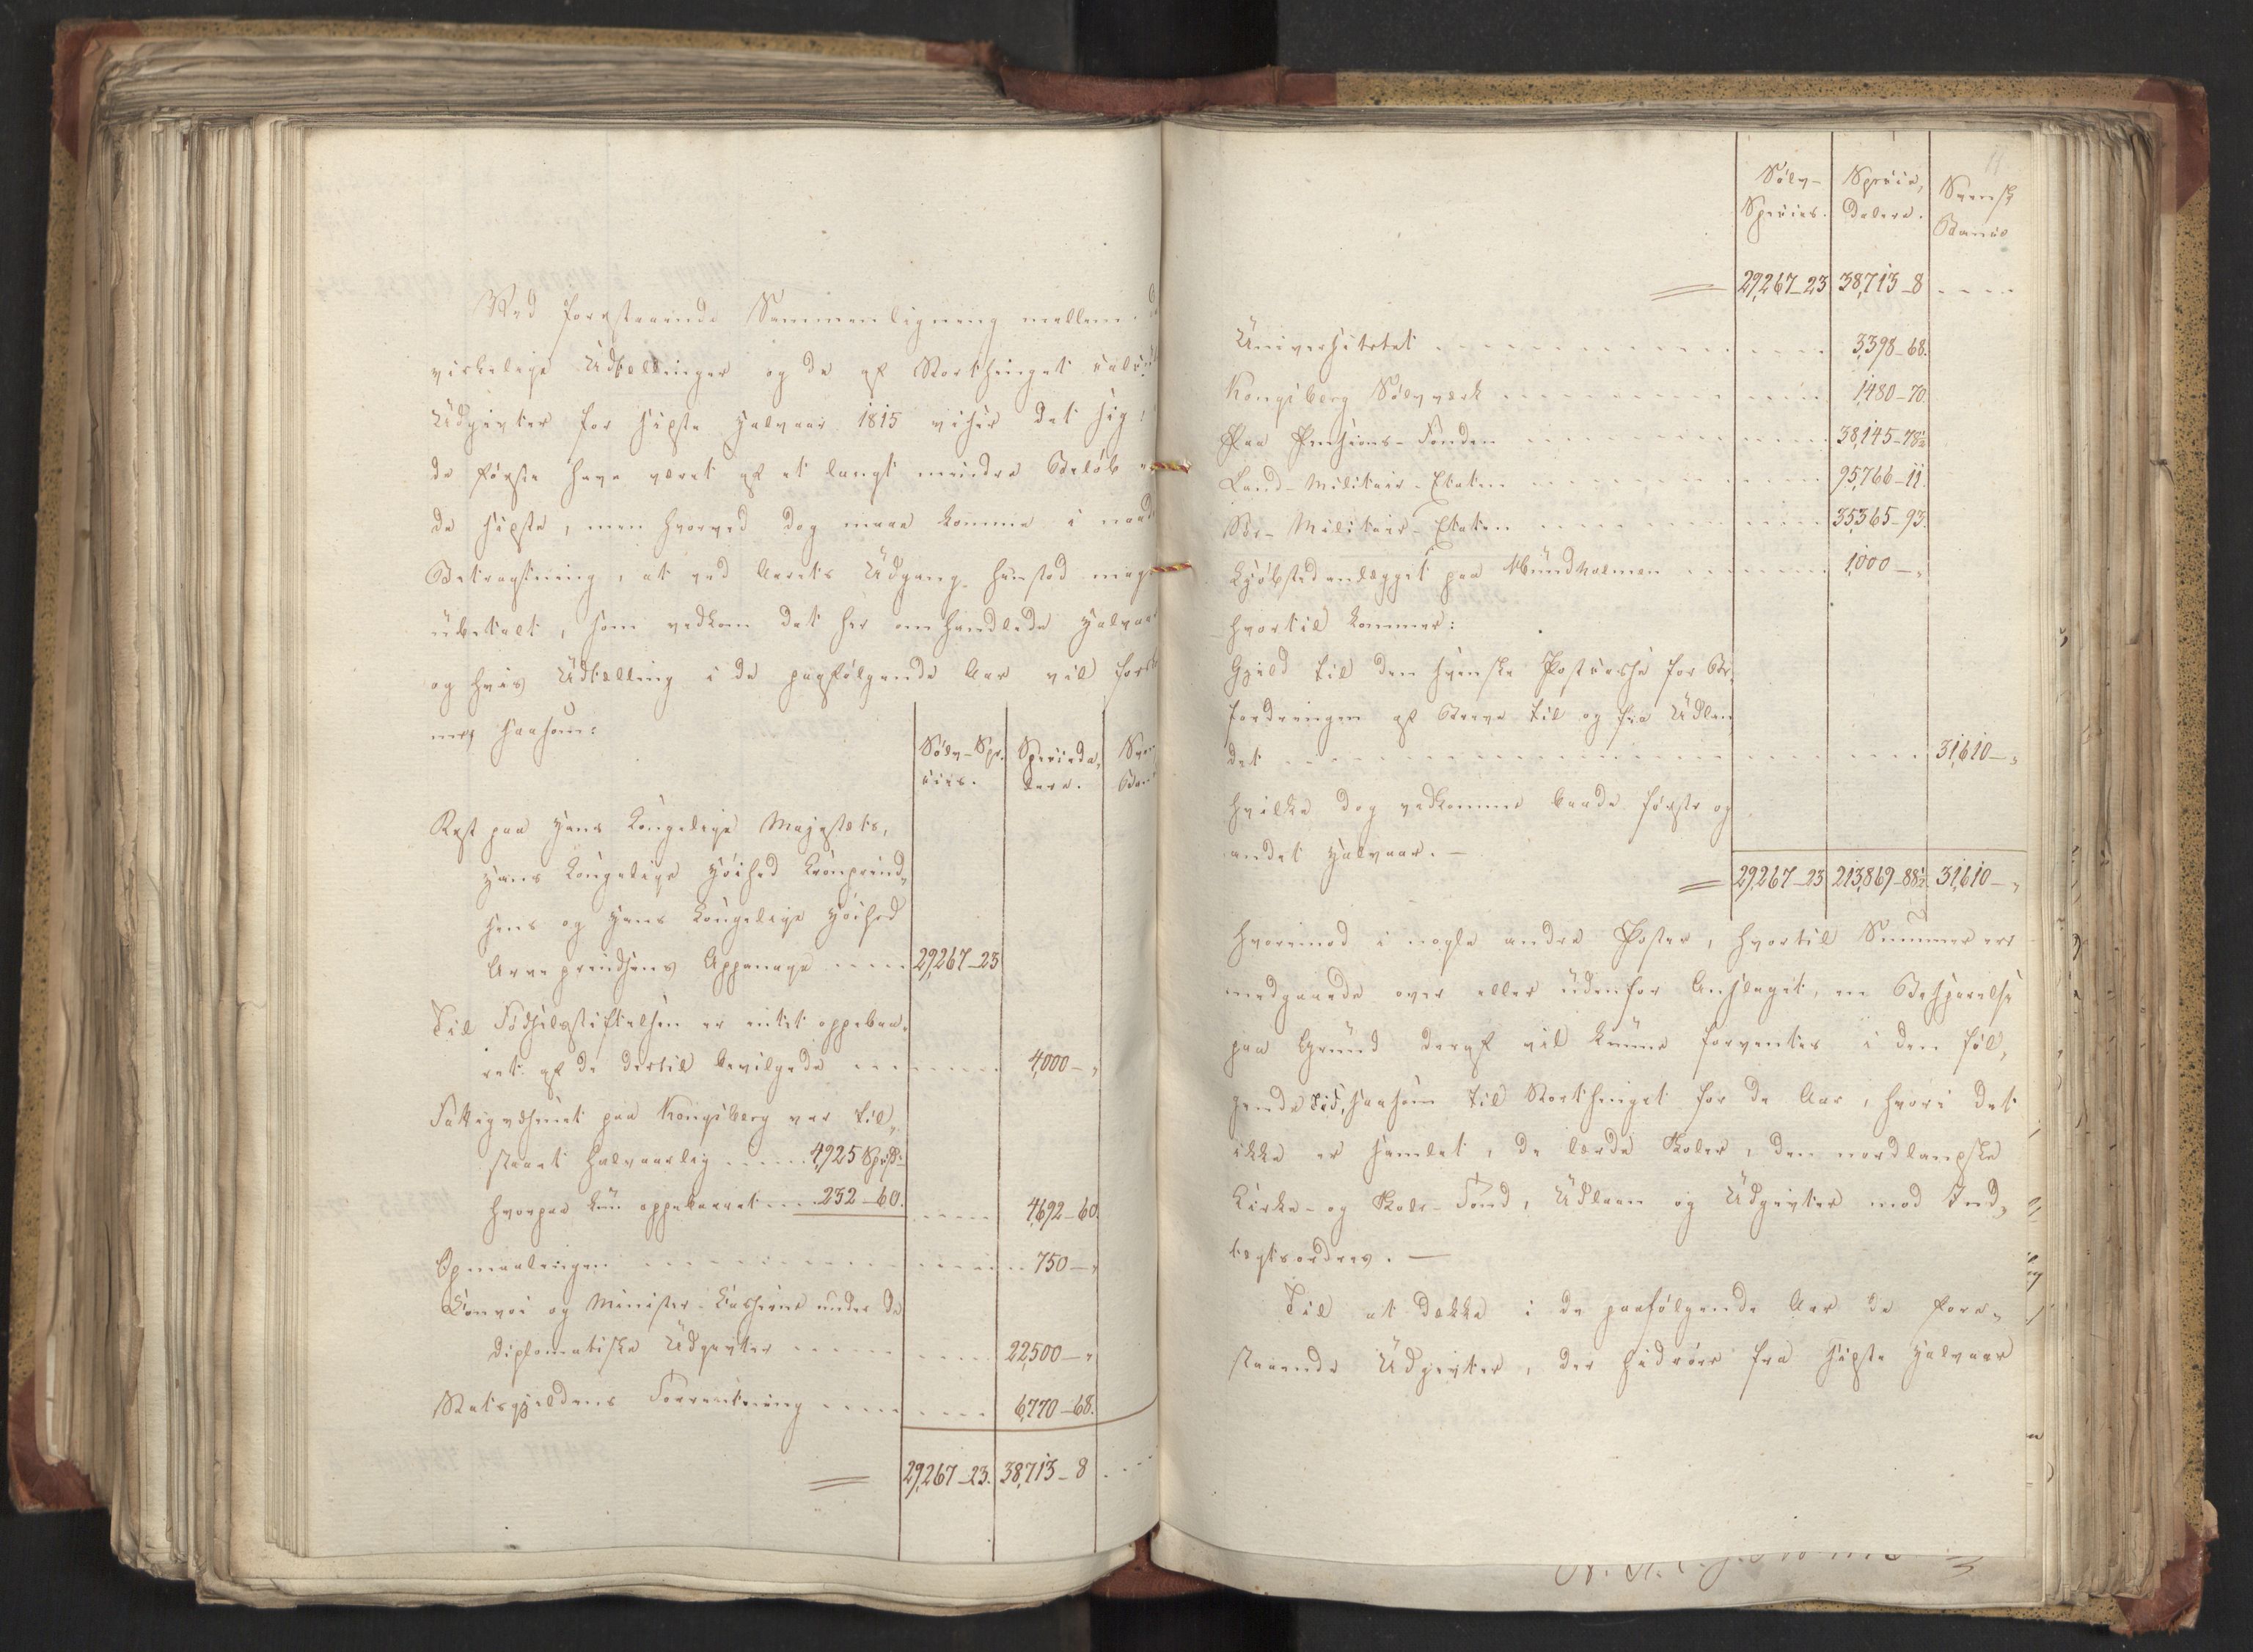 Ved forestaaende Sammenligning mellem
virkelige Udtællinger og de af Storthinget
Udgivter for sidste Halvaar 1815 viser det sig:
de første have været af et langt mindre Beløb
de sidste, men hvorved dog maae komme i
Betragtning, at ved Aarets Udgang henstod
ubetalt, som vedkom det her omhandlede
og hvis Udtælling i de paafølgende Aar vil
mes saasom:
Sølv-Spe- Specieda-
cies. lere.
Rest paa Hans Kongelige Majestæts,
Hans Kongelige Høihed Kronprind-
sens og Hans Kongelige Høihed
Arveprindsens Appanage ..... 29,267-23
Til Fødselsstiftelsen er intet oppebaa-
ret af de dertil bevilgede ..... 4,000-"
Fattigvæsenet paa Kongsberg var til-
staaet halvaarlig ..... 4,925 Sp:
hvorpaa kun oppebaaret .... 232-60. ..... 4,692-60.
Opmaalingen ..... 750-"
Convoi og Minister-Casserne under de
diplomatiske Udgivter ..... 22,500-"
Statsgjeldens Forrentning ..... 6,770-68.
29,267-23. 38,713-8 ....
Sølv- Specie- Svensk
Species. dalere. Banco
29,267-23 38,713-8 ....
Universitetet ..... 3,398-68.
Kongsberg Sølvværk ..... 1,480-70.
Paa Pensions-Fonden ..... 38,145-78½
Land-Militair-Etaten ..... 95,766-11.
Søe-Militair-Etaten ..... 35,365-93.
Kjøbstedanlægget paa Mundholmen ..... 1,000-"
hvortil kommer:
Gjeld til den svenske Postcasse for Be-
fordringen af Breve til og fra Udlan-
det ..... 31,610-"
hvilke dog vedkomme baade første og
andet Halvaar. -
29,267-23 213,869-88½ 31,610-"
hvorimod i nogle andre Poster, hvortil Summer ere
medgaaede over eller udenfor Anslaget, en Besparelse
paa Grund deraf vil kunne forventes i den føl-
gende Tid, saasom til Storthinget for de Aar, hvori det
ikke er samlet, de lærde Skoler, den nordlandske
Kirke- og Skole-Fond, Udlaan og Udgivter mod Ind-
tægtsordres. -
Til at dække i de paafølgende Aar de fore-
staaende Udgivter, der hidrøre fra sidste Halvaar